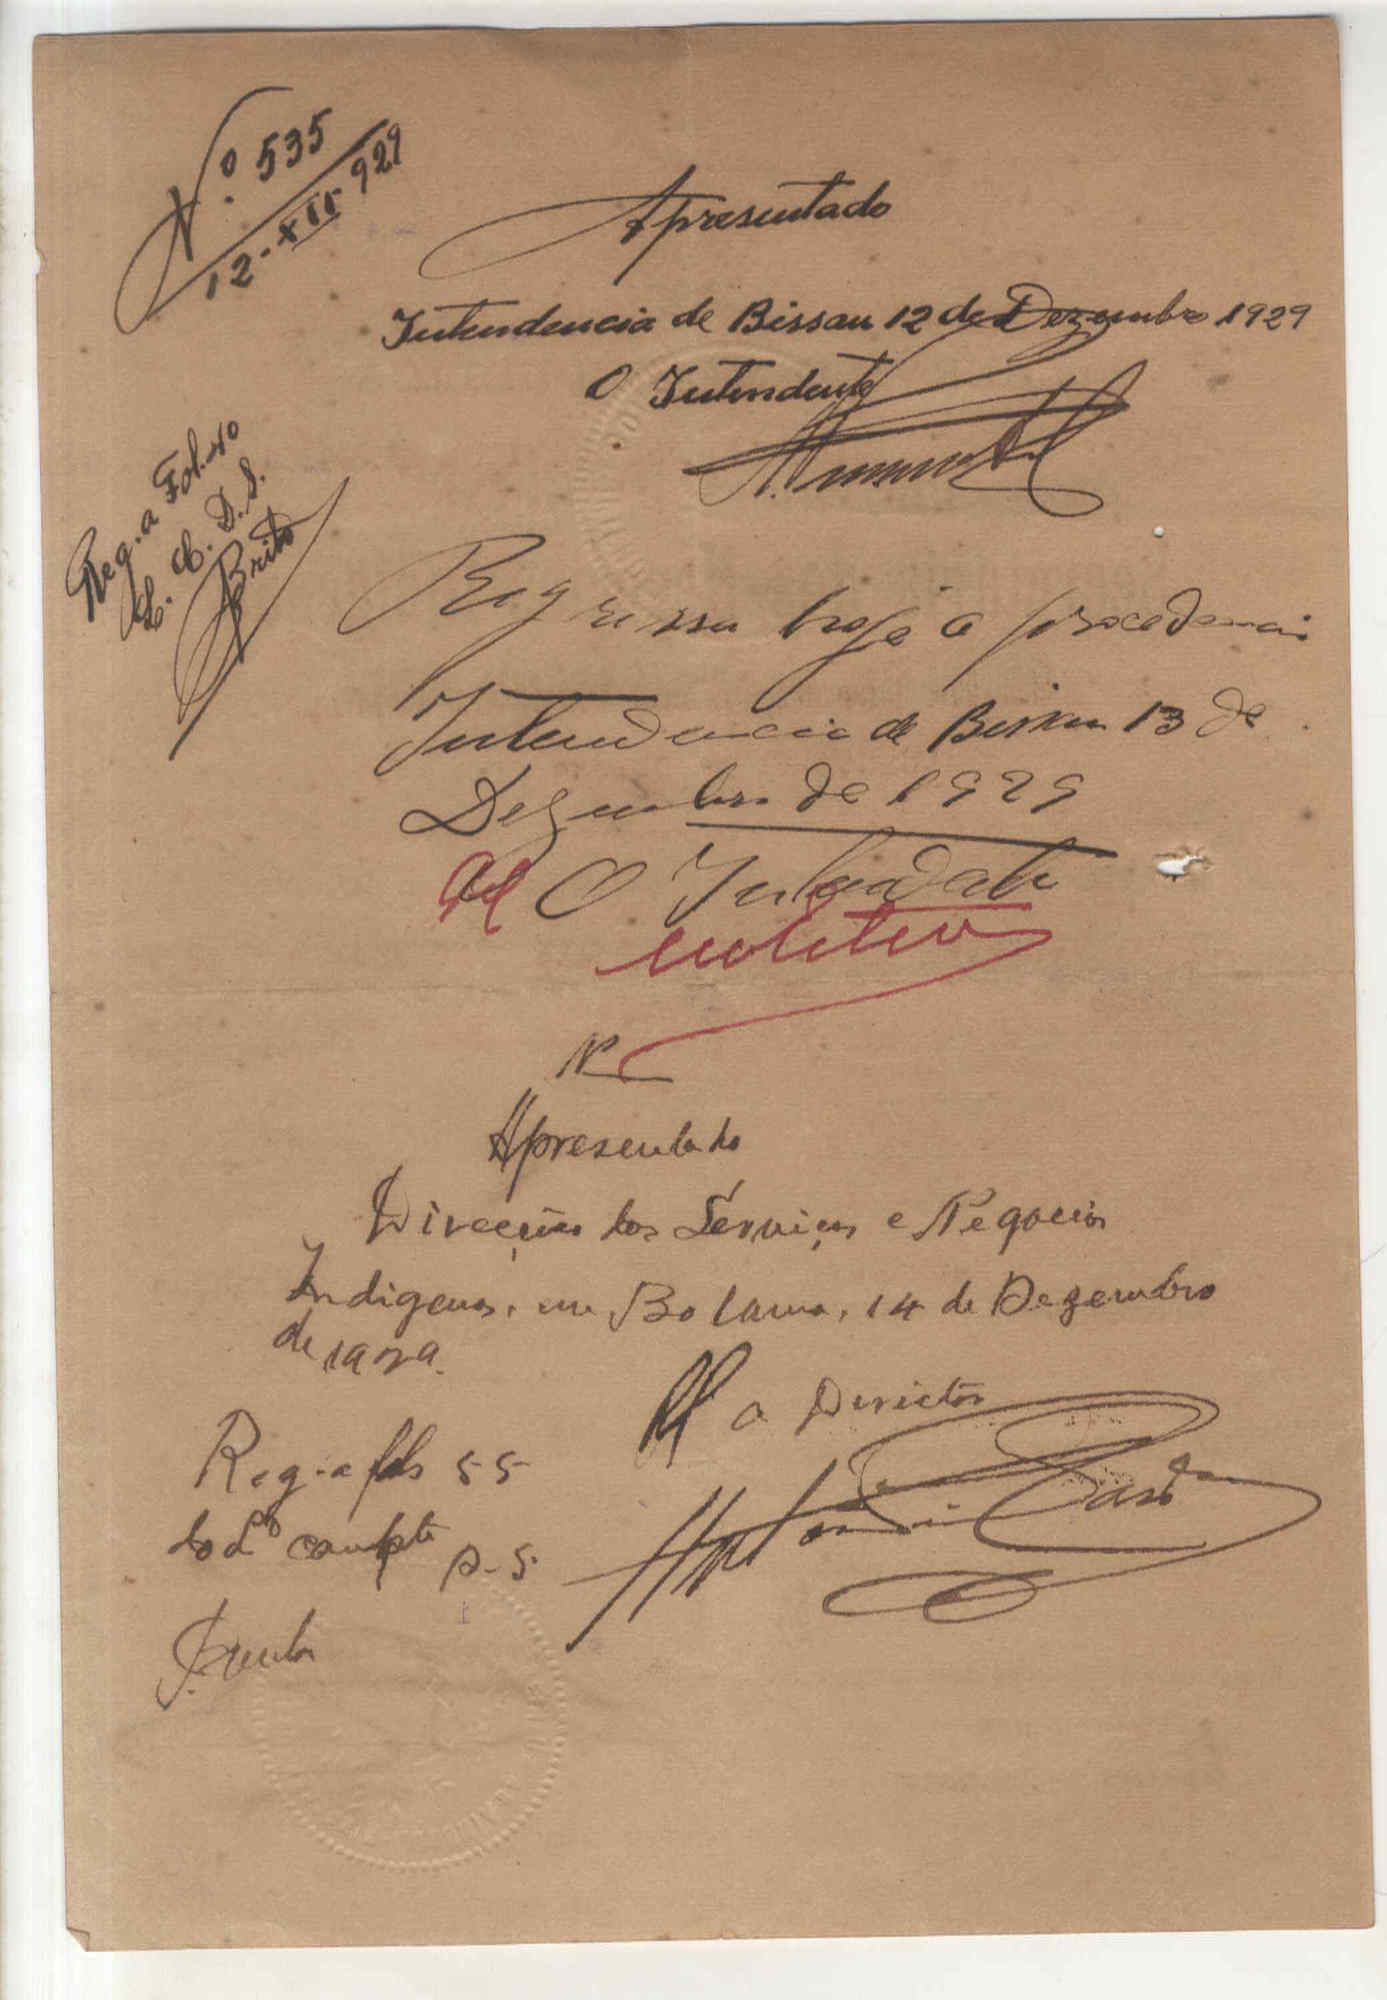 Nº 535
12-XII-929
Apresentado
Intendencia de Bissau 12 de Dezembro 1929
O Intendente
Reg. a Fol. 40
D. S.
Brito
Regressa hoje a procedencia
Intendencia de Bissau 13 de
Dezembro de 1929
O Intendente
Nº
Apresentado
Direcção dos Serviços e Negocios
Indigenas, em Bolama, 14 de Dezembro
de 1929.
O Director
Reg. a fls 55
do Lº compte
D. S.